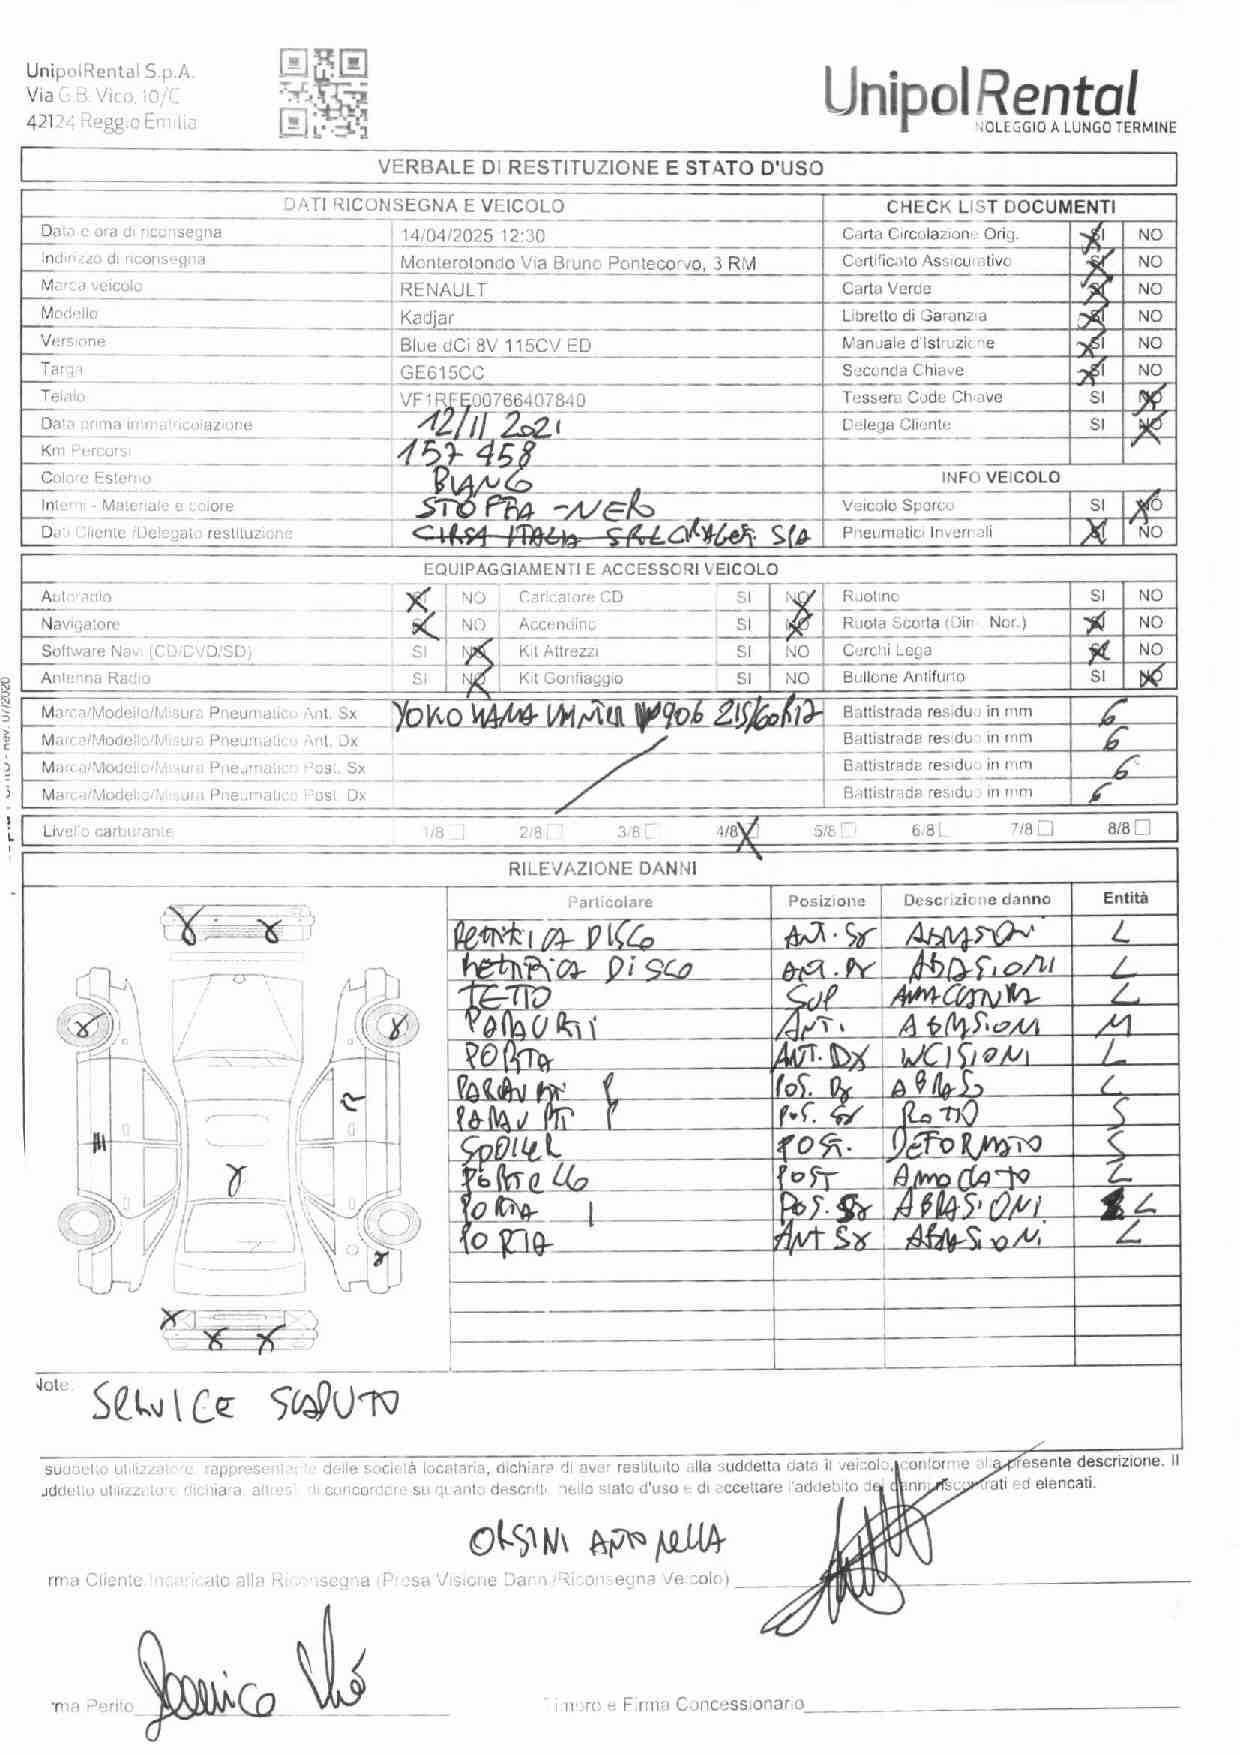 UnipolRental S.p.A.
Via G.B. Vico, 10/C
42124 Reggio Emilia
UnipolRental
NOLEGGIO A LUNGO TERMINE
VERBALE DI RESTITUZIONE E STATO D'USO
DATI RICONSEGNA E VEICOLO CHECK LIST DOCUMENTI
Data e ora di riconsegna 14/04/2025 12:30 Carta Circolazione Orig. SI NO
Indirizzo di riconsegna Monterotondo Via Bruno Pontecorvo, 3 RM Certificato Assicurativo SI NO
Marca veicolo RENAULT Carta Verde SI NO
Modello Kadjar Libretto di Garanzia SI NO
Versione Blue dCi 8V 115CV ED Manuale d'Istruzione SI NO
Targa GE615CC Seconda Chiave SI NO
Telaio VF1RFE00766407840 Tessera Code Chiave SI NO
Data prima immatricolazione 12/11/2021 Delega Cliente SI NO
Km Percorsi 157 458
Colore Esterno BIANCO INFO VEICOLO
Interni - Materiale e colore STOFFA - NERO Veicolo Sporco SI NO
Dati Cliente /Delegato restituzione CIRSA ITALIA SRL SPA Pneumatici Invernali SI NO
EQUIPAGGIAMENTI E ACCESSORI VEICOLO
Autoradio SI NO Caricatore CD SI NO Ruotino SI NO
Navigatore SI NO Accendino SI NO Ruota Scorta (Dim. Nor.) SI NO
Software Navi (CD/DVD/SD) SI NO Kit Attrezzi SI NO Cerchi Lega SI NO
Antenna Radio SI NO Kit Gonfiaggio SI NO Bullone Antifurto SI NO
Marca/Modello/Misura Pneumatico Ant. Sx YOKOHAMA 906 215/60R17 Battistrada residuo in mm 6
Marca/Modello/Misura Pneumatico Ant. Dx Battistrada residuo in mm 6
Marca/Modello/Misura Pneumatico Post. Sx Battistrada residuo in mm 6
Marca/Modello/Misura Pneumatico Post. Dx Battistrada residuo in mm 6
Livello carburante 1/8 2/8 3/8 4/8 5/8 6/8 7/8 8/8
RILEVAZIONE DANNI
Particolare Posizione Descrizione danno Entità
DISCO ANT. SX ABRASIONI L
DISCO ANT. DX ABRASIONI L
TETTO SUP L
PARAURTI ANT. ABRASIONI M
PORTA ANT. DX INCISIONI L
PARAURTI POS. DX ABRAS L
PARAURTI POS. SX ROTTO S
SPOILER POST. DEFORMATO S
PORTELLO POST L
PORTA POS. SX ABRASIONI L
PORTA ANT SX ABRASIONI L
Note: SERVICE SCADUTO
suddetto utilizzatore, rappresentante delle società locataria, dichiara di aver restituito alla suddetta data il veicolo, conforme alla presente descrizione. Il
uddetto utilizzatore dichiara, altresì, di concordare su quanto descritto nello stato d'uso e di accettare l'addebito dei danni riscontrati ed elencati.
ORSINI ANTONELLA
rma Cliente Incaricato alla Riconsegna (Presa Visione Danni/Riconsegna Veicolo)
rma Perito Timbro e Firma Concessionario